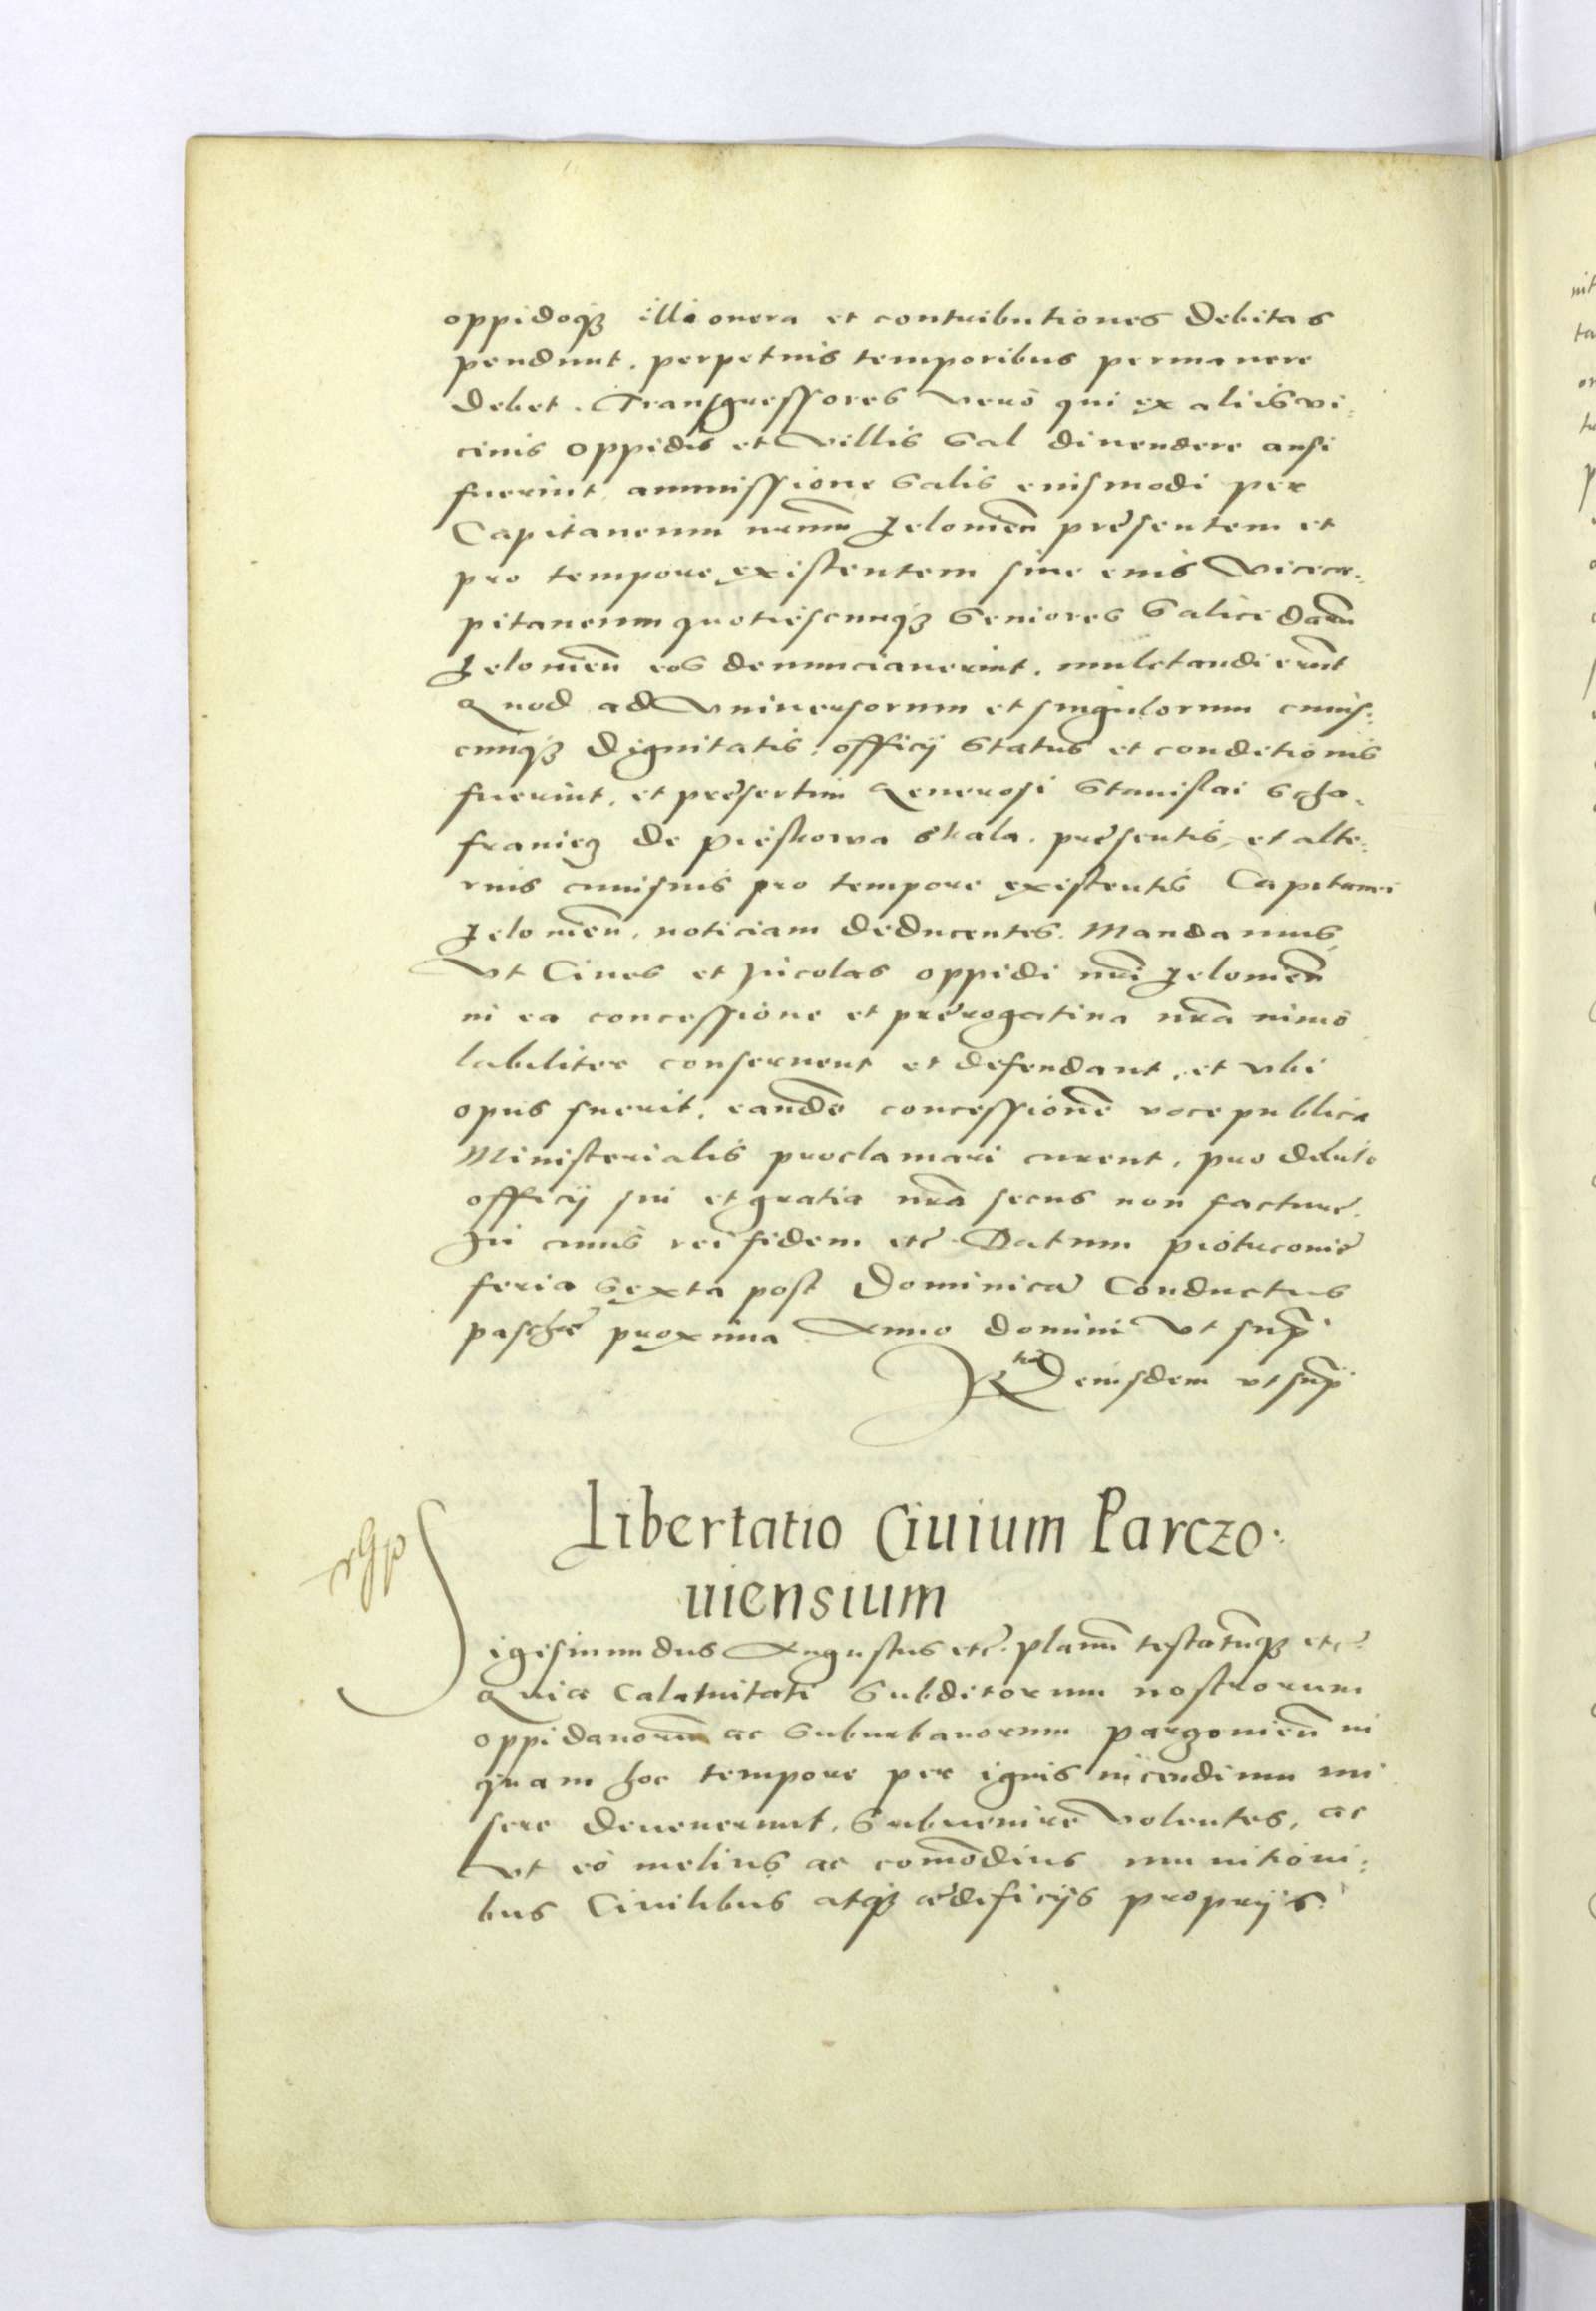 oppidoqȝ illi onera et contributiones debitas
pendunt. perpetuis temporibus permanere
debet. Transgressores verò qui ex aliis vi:
cinis oppidis et villis Sal divendere ausi
fuerint, ammissione Salis eiusmodi per
Capitaneum nrum Jelomen̄ presentem et
pro tempore existentem sive eius Viceca:
pitaneum quotiescunqȝ Seniores Salici dacm̄
Jelomien̄ eos denunciaverint. mulctandi erunt
Quod ad Universorum et singulorum cuius:
cunqȝ dignitatis, officij Status et conditionis
fuerint, et presertim Generosi Stanislai Scha.
franiecz de Pieskowa Skala. presentis, et alte:
rius cuiusvis pro tempore existentis Capitanei
Jelomien̄, noticiam deducentes. Mandamus
Ut Cives et Incolas oppidi nri Jelomien̄
in ea concessione et prerogativa nra invio
labiliter conservent et defendant, et ubi
opus fuerit, eande concessione voce publica
Ministerialis proclamari curent, pro debito
officij sui et gratia nra secus non facture.
In cuius rei fidem etc Datum Piotrcovie
feria Sexta post Dominica Conductus
pasche proxima Anno domini Ut sup̄
Rtio eiusdem ut sup̄
Libertatio Civium Parczo:
viensium
Sigismundus Augustus etc. planu testatuqȝ etc
Quia Calamitati Subditorum nostrorum
oppidanorum ac Suburbanorum Parzovien̄ in
quam hoc tempore per ignis incendium mi
sere devenerunt, Subvenire volentes, ac
Ut eo melius ac comodius munitioni:
bus Civilibus atqȝ ædificijs proprijs